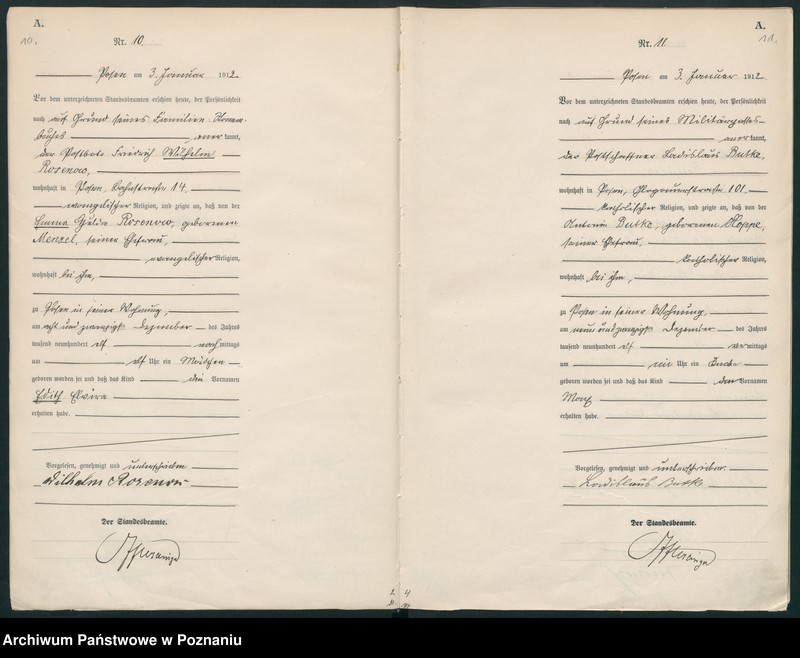 A.
10.
Nr. 10
Posen am 3. Januar 1912
Vor dem unterzeichneten Standesbeamten erschien heute, der Persönlichkeit
nach auf Grund seines Familien Stamm-
buches anerkannt,
der Postbote Friedrich Wilhelm
Rosenow,
wohnhaft in Posen, 14.
evangelischer Religion, und zeigte an, daß von der
Emma Hulda Rosenow, geborenen
Menzel, seiner Ehefrau,
evangelischer Religion,
wohnhaft bei ihm,
zu Posen in seiner Wohnung,
am acht und zwanzigsten Dezember des Jahres
tausend neunhundert elf nachmittags
um elf Uhr ein Mädchen
geboren worden sei und daß das Kind die Vornamen
Edith Elvira
erhalten habe.
Vorgelesen, genehmigt und unterschrieben
Wilhelm Rosenow
Der Standesbeamte.
A.
11.
Nr. 11
Posen am 3. Januar 1912
Vor dem unterzeichneten Standesbeamten erschien heute, der Persönlichkeit
nach auf Grund seines Militärpasses
anerkannt,
der Postschaffner Ladislaus Butke,
wohnhaft in Posen, Glogauerstrasse 101.
katholischer Religion, und zeigte an, daß von der
Antonie Butke, geborenen Hoppe,
seiner Ehefrau,
katholischer Religion,
wohnhaft bei ihm,
zu Posen in seiner Wohnung,
am neun und zwanzigsten Dezember des Jahres
tausend neunhundert elf vormittags
um ein Uhr ein Knabe
geboren worden sei und daß das Kind den Vornamen
Max
erhalten habe.
Vorgelesen, genehmigt und unterschrieben.
Ladislaus Butke
Der Standesbeamte.
Archiwum Państwowe w Poznaniu